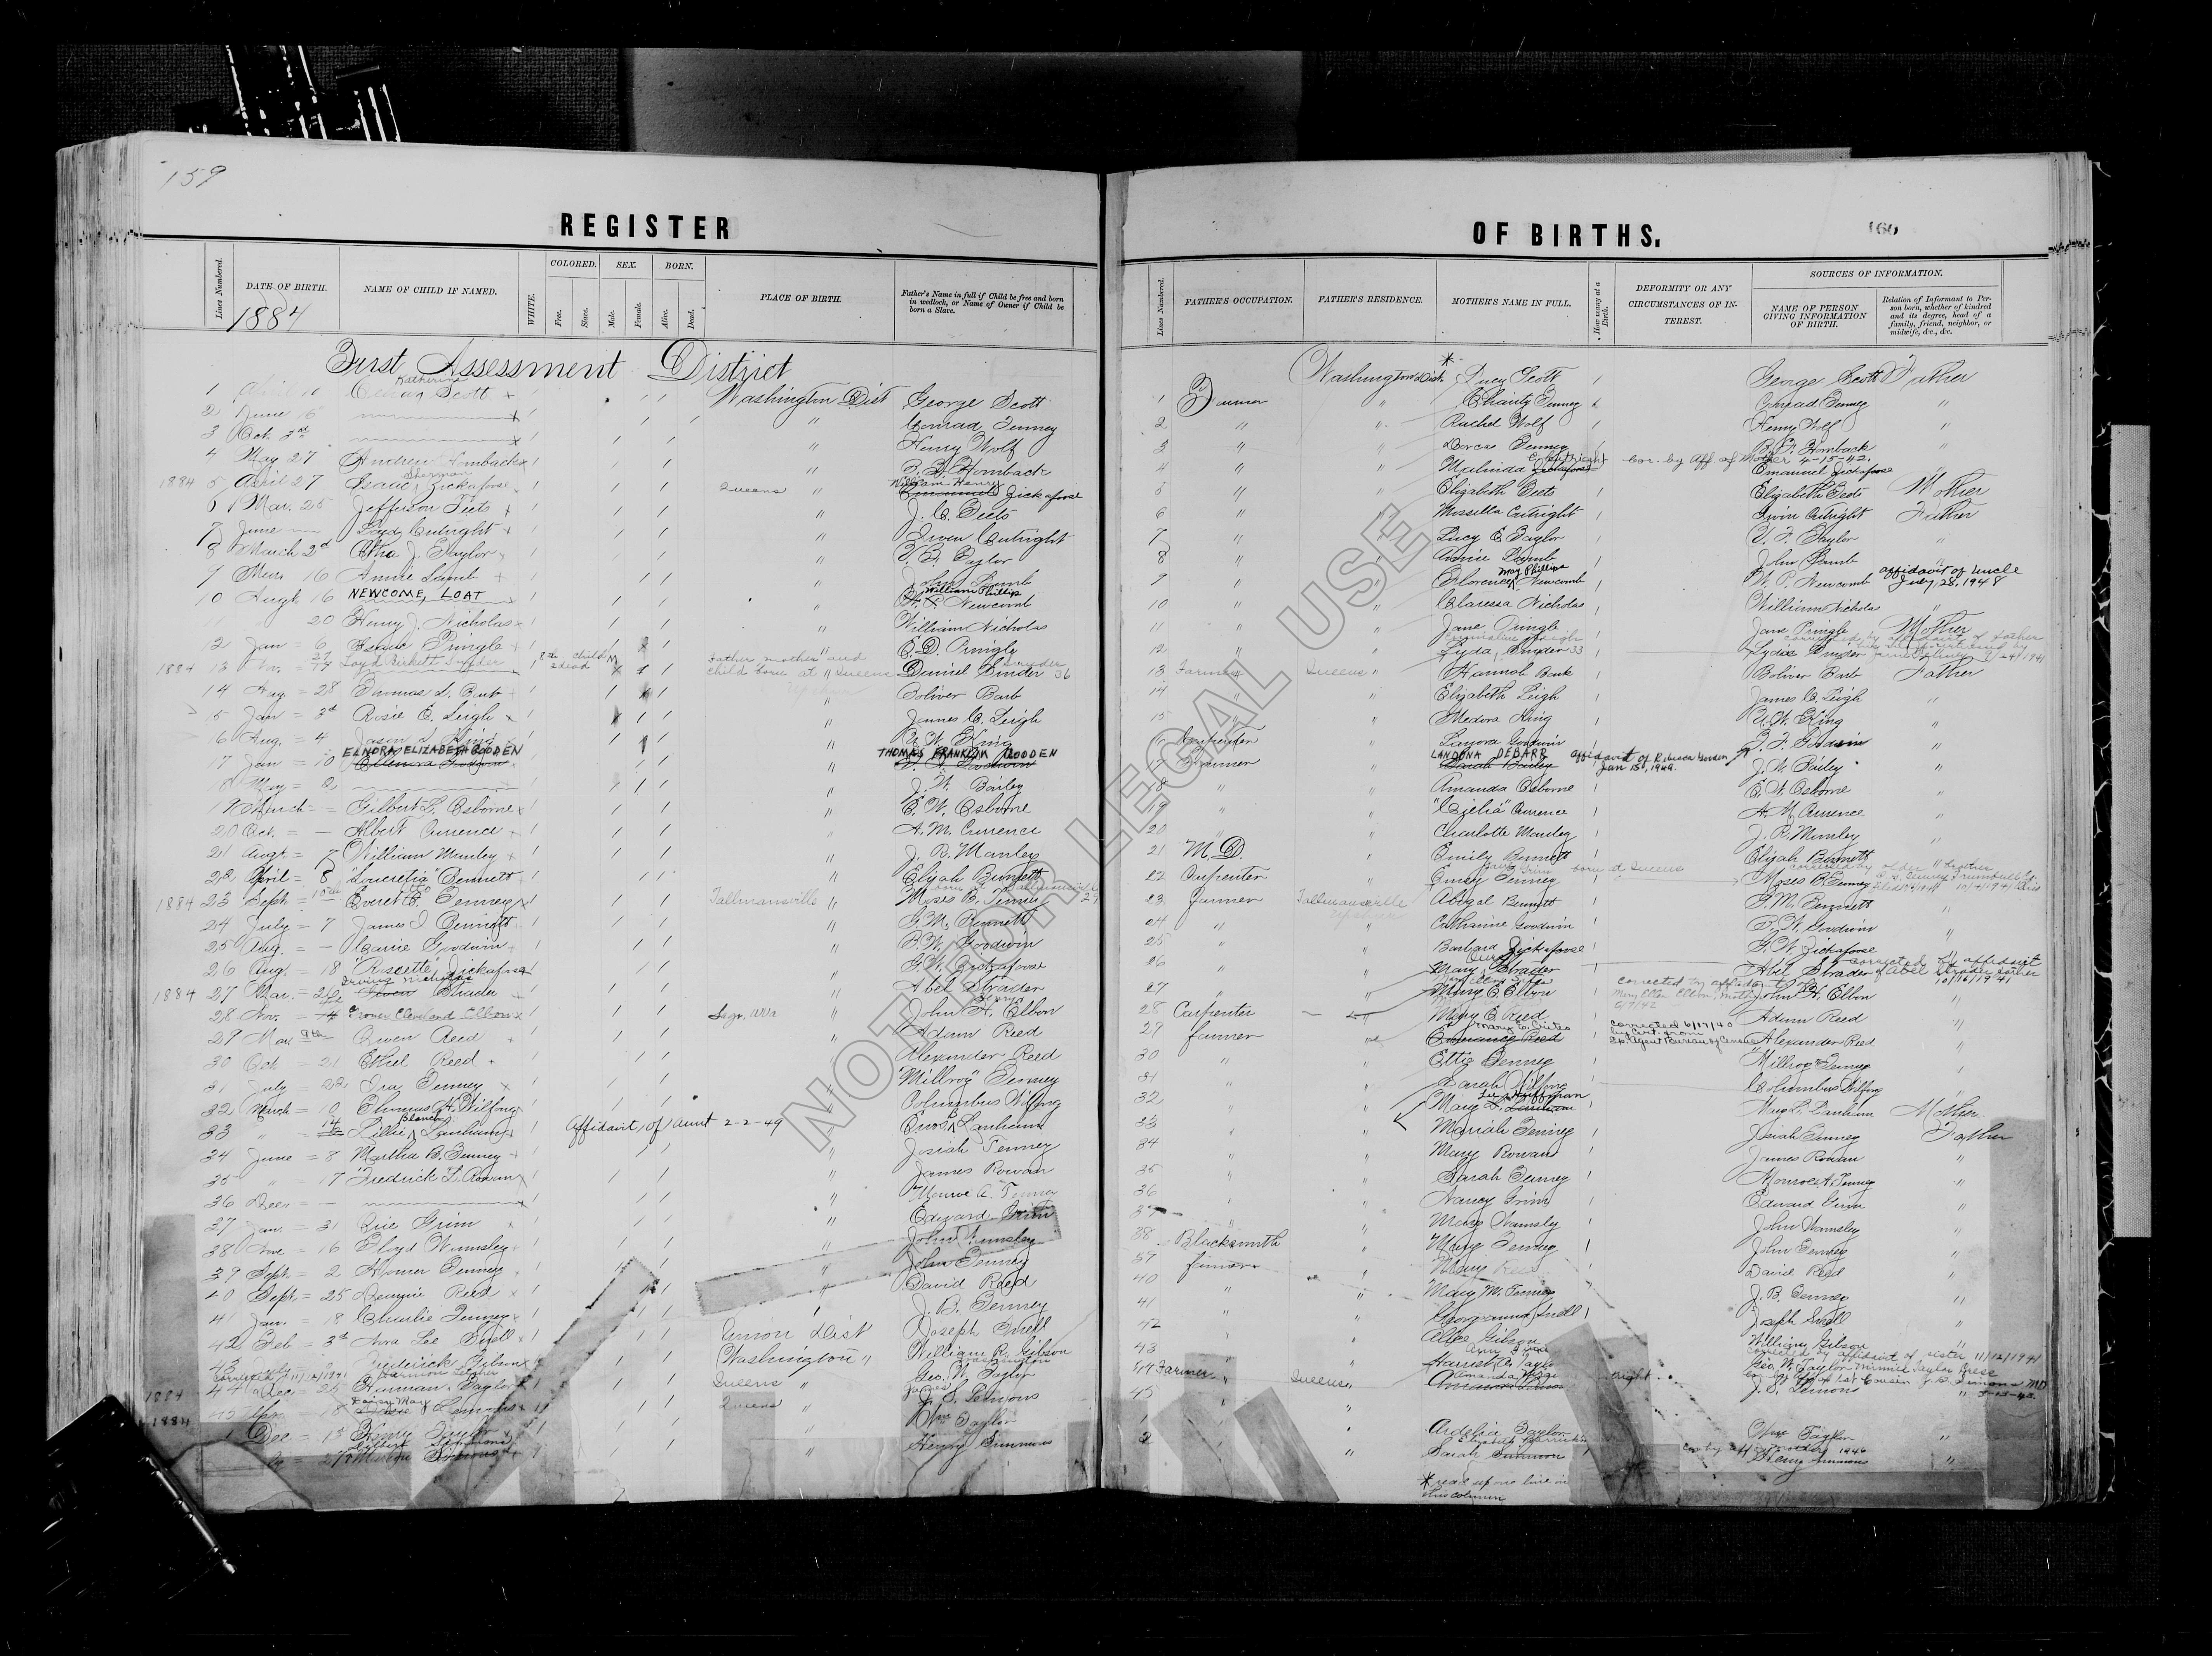 159
REGISTER
1884
Lines Numbered.
DATE OF BIRTH.
NAME OF CHILD IF NAMED.
WHITE.
COLORED.
Free.
Slave.
SEX.
Male.
Female.
BORN.
Alive.
Dead.
PLACE OF BIRTH.
Father's Name in full if Child be free and born in wedlock, or Name of Owner if Child be born a Slave.
First Assessment District
Katherine
1 April 10 Scott Washington Dist George Scott
2 June 16 " Conrad Tenney
3 Oct. 3rd " Henry Wolf
4 May 27 Andrew Hornback " B. F. Hornback
1884 5 April 27 Isaac Sherman Zickafoose Queens " William Henry Zickafoose
6 Mar. 25 Jefferson Teets " J. C. Teets
7 June Loyd Cutright " Irven Cutright
8 March 2nd Etha J. Taylor " Taylor
9 Mar. 16 Annie Lamb John Lamb
10 Augt 16 NEWCOME, LOAT " William Phillip Newcomb
11 " 20 Henry J. Nicholas William Nicholas
12 Jan = 6 Pringle " Pringle
1884 13 Nov. Loyd Birkett Snyder 8th child 2 dead Father mother and child born at Queens Daniel Snyder 36
14 Aug = 28 Barb Boliver Barb
15 Jan = 3rd Rosie E. Leigh James C. Leigh
16 Aug. = 4 Jason King " King
17 Jan = 10 ELNORA ELIZABETH GOODEN THOMAS FRANKLIN GOODEN
18 May = 2 J. W. Bailey
19 March = Gilbert L. Osborne E. W. Osborne
20 Oct. = Albert Currence A. M. Currence
21 Augt. = 7 William Manley J. R. Manley
22 April = 8 "Loucretia" Bennett Elijah Bennett
1884 23 Sept = 15th Everet Tenney Tallmansville " Moses B. Tenney 29
24 July = 7 James I Bennett G. M. Bennett
25 Aug. = Carrie Goodwin P. W. Goodwin
26 Aug. = 18 "Rosette" Zickafoose G. W. Zickafoose
1884 27 Mar. = 26 Irving McBride Strader Abel Strader
28 Nov. = 14 Grover Cleveland Elbon Sago, WVa " John Henry Elbon
29 Mar 9th Owen Reed " Adam Reed
30 Oct = 21 Ethel Reed Alexander Reed
31 July = 22 Ira Tenney "Millroy" Tenney
32 March = 10 Thomas H. Wilfong Columbus Wilfong
33 " = 14 Lillie Lanham Affidavit of Aunt 2-2-49 Lanham
34 June = 8 Martha B. Tenney Josiah Tenney
35 " = 17 Fredrick L. Rowan James Rowan
36 Dec. = "Monroe A." Tenney
37 Jan. = 31 Grim Edward Grim
38 Nov = 16 Floyd Wamsley John Wamsley
39 Sept = 2 Homer Tenney John Tenney
40 Sept. = 25 Reed David Reed
41 Jan. = 18 Charlie Tenney J. B. Tenney
42 Feb = 3rd Nora Lee Snell Union Dist Joseph Snell
43 Frederick Gibson Washington " William R. Gibson
1884 44 Dec = 25 Herman Taylor Queens " Geo. Washington Taylor
1884 45 18 Daisy May Lemons Queens " James S. Lemons
1 Dec = 15 Taylor Wm Taylor
Simmons " Henry Simmons
OF BIRTHS.
160
Lines Numbered.
FATHER'S OCCUPATION.
FATHER'S RESIDENCE.
MOTHER'S NAME IN FULL.
How many at a Birth.
DEFORMITY OR ANY CIRCUMSTANCES OF INTEREST.
SOURCES OF INFORMATION.
NAME OF PERSON GIVING INFORMATION OF BIRTH.
Relation of Informant to Person born, whether of kindred and its degree, head of a family, friend, neighbor, or midwife, &c., &c.
Washington Dist. * Lucy Scott George Scott Father
1 Farmer " Charity Tenney Conrad Tenney "
2 " " Rachel Wolf Henry Wolf "
3 " " Dorcas Tenney B. F. Hornback "
4 " " Malinda Cutright Cor. by Aff. of Mother 4-15-42. Emanuel Zickafoose "
5 " " Elizabeth Teets Elizabeth Teets Mother
6 " " Mossella Cutright Irvin Cutright Father
7 " " Lucy E Taylor Taylor "
8 " " Annie Lamb John Lamb "
9 " " Florence May Phillips Newcomb W. P. Newcomb affidavit of Uncle July, 28, 1948
10 " " Claressa Nicholas William Nicholas "
11 " " Jane Pringle Jane Pringle Mother
12 " " Lyda Snyder 33 Lydia Snyder
13 Farmer Queens " Hannah Barb Boliver Barb Father
14 " " Elizabeth Leigh James C. Leigh "
15 " " Medora King King "
16 Carpenter " Lanora Goodwin T. F. Goodwin "
17 Farmer " LANDONA DEBARR Affidavit of Rebecca Gooden Jan 15, 1946 J. W. Bailey "
18 " " Amanda Osborne E. W. Osborne "
19 " " "Cjelia" Currence A. M. Currence "
20 " " Charlotte Manley J. R. Manley "
21 M. D. " Emily Bennett Elijah Bennett "
22 Carpenter " Emey Tenney born at Queens Moses B. Tenney 10/4/1941
23 Farmer Tallmansville " Abigal Bennett G. M. Bennett "
24 " " Catharine Goodwin P. W. Goodwin "
25 " " Barbara Zickafoose G. W. Zickafoose "
26 " " Mary Strader Abel Strader corrected by affidavit of Abel Strader father 10/16/1941
27 " " Mary E. Elbon corrected by affidavit Mary Ellen Elbon, Mother John H. Elbon
28 Carpenter " Mary E Reed Adam Reed "
29 farmer " corrected 6/17/40 by Cert. from Sp. Agent Bureau of Census Alexander Reed "
30 " " Ettie Tenney "Millroy" Tenney "
31 " " Sarah Wilfong Columbus Wilfong "
32 " " Mary Huffman Mary L. Lanham Mother
33 " " Mariah Tenney Josiah Tenney Father
34 " " Mary Rowan James Rowan "
35 " " Sarah Tenney Monroe A. Tenney "
36 " " Nancy Grim Edward Grim "
37 " " Mary Wamsley John Wamsley "
38 Blacksmith " Mary Tenney John Tenney "
39 farmer " Mary Reed David Reed "
40 " " Mary M. Tenney J. B. Tenney "
41 " " Georgeanna Snell Joseph Snell "
42 " " Alice Gibson William Gibson "
43 " " Harriet Taylor Geo. W. Taylor corrected by affidavit of sister 11/12/1941
44 Farmer Queens " J. S. Lemons "
45 "
1 " Ardelia Taylor Wm Taylor "
2 " " Sarah Simmons Henry Simmons "
* read up one line in this column
NOT FOR LEGAL USE